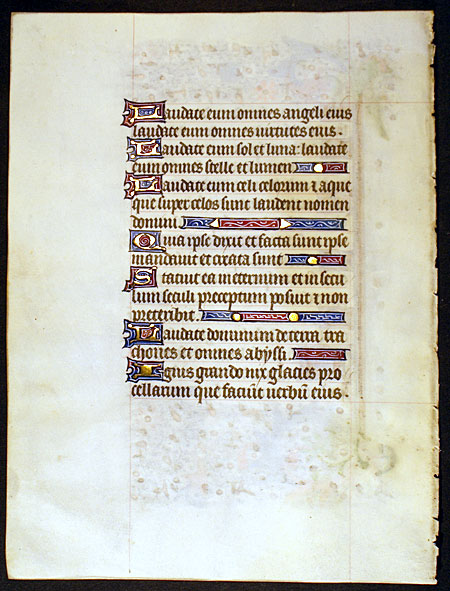 Laudate eum omnes angeli eius
laudate eum omnes uirtutes eius.
Laudate eum sol et luna: laudate
eum omnes stelle et lumen
Laudate eum celi celorum ⁊ aque
que super celos sunt laudent nomen
domini
Quia ipse dixit et facta sunt ipse
mandauit et creata sunt
Statuit ea ineternum et in secu
lum seculi preceptum posuit ⁊ non
preteribit.
Laudate dominum de terra dra
chones et omnes abyssi.
Ignis grando nix glacies pro
cellarum que faciūt uerbū eius.